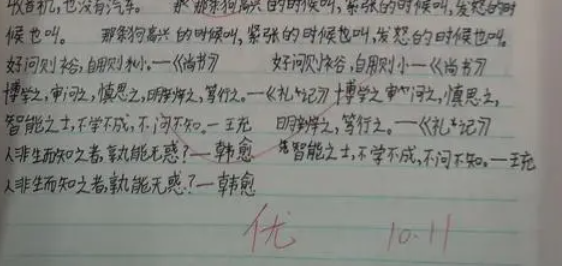 收音机,也没有汽车。 那条狗高兴的时候叫,紧张的时候叫,发怒的时
候也叫。 那条狗高兴的时候叫,紧张的时候也叫,发怒的时候也叫。
好问则裕,自用则小。—《尚书》 好问则裕,自用则小—《尚书》
博学之,审问之,慎思之,明辨之,笃行之。—《礼记》 博学之审问之,慎思之,
智能之士,不学不成,不问不知。—王充 明辨之,笃行之。—《礼记》
人非生而知之者,孰能无惑?—韩愈 智能之士,不学不成,不问不知。—王充
人非生而知之者,孰能无惑?—韩愈
优 10.11